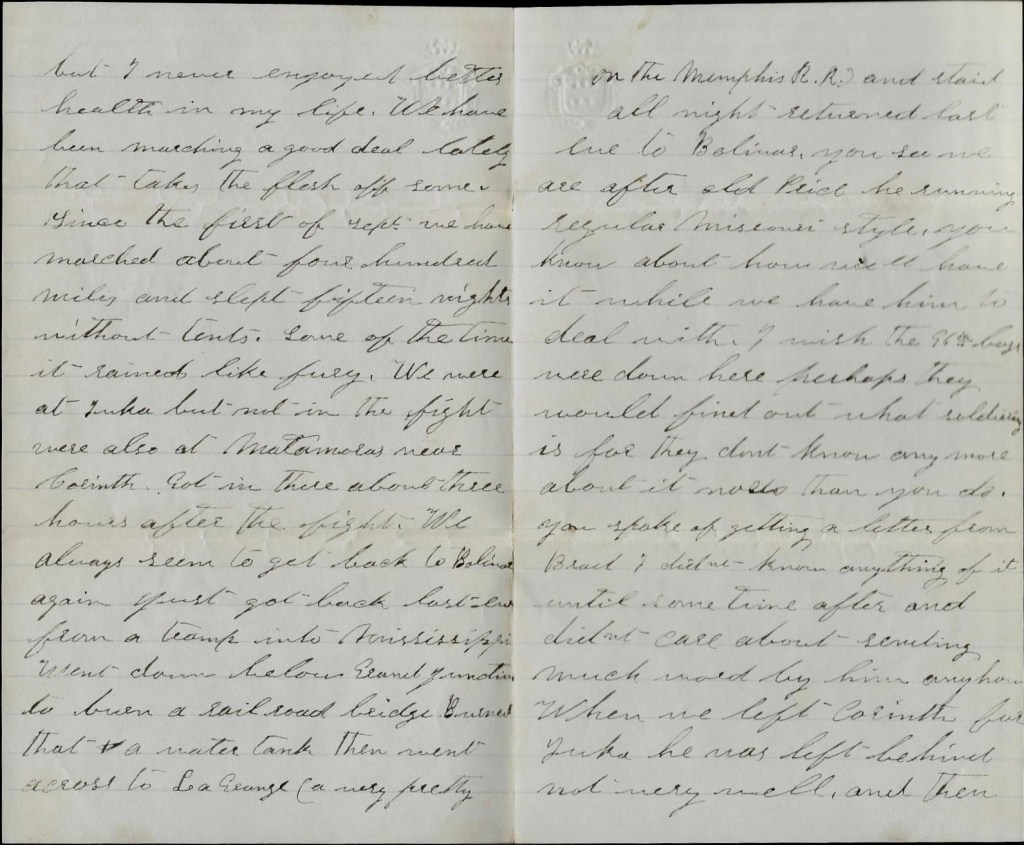 but I never enjoyed better
health in my life. We have
been marching a good deal lately
that takes the flesh off some.
Since the first of sept we have
marched about four hundred
miles and slept fifteen nights
without tents. Some of the time
it rained like fury. We were
at Iuka but not in the fight
were also at Matamoras near
Corinth. Got in there about three
hours after the fight. We
always seem to get back to Bolivar
again just got back last eve
from a tramp into Mississippi
Went down below Grand Junction
to burn a railroad bridge Burned
that & a water tank then went
across to LaGrange (a very pretty
on the Memphis R.R.) and staid
all night returned last
eve to Bolivar. you see we
are after old Price he running
regular Missouri style. you
know about how we'll have
it while we have him to
deal with. I wish the 96th boys
were down here perhaps they
would find out what soldiering
is for they dont know any more
about it now than you do.
You spoke of getting a letter from
I didnt know anything of it
until some time after and
didnt care about sending
much word by him anyhow
When we left Corinth for
Iuka he was left behind
not very well. and then